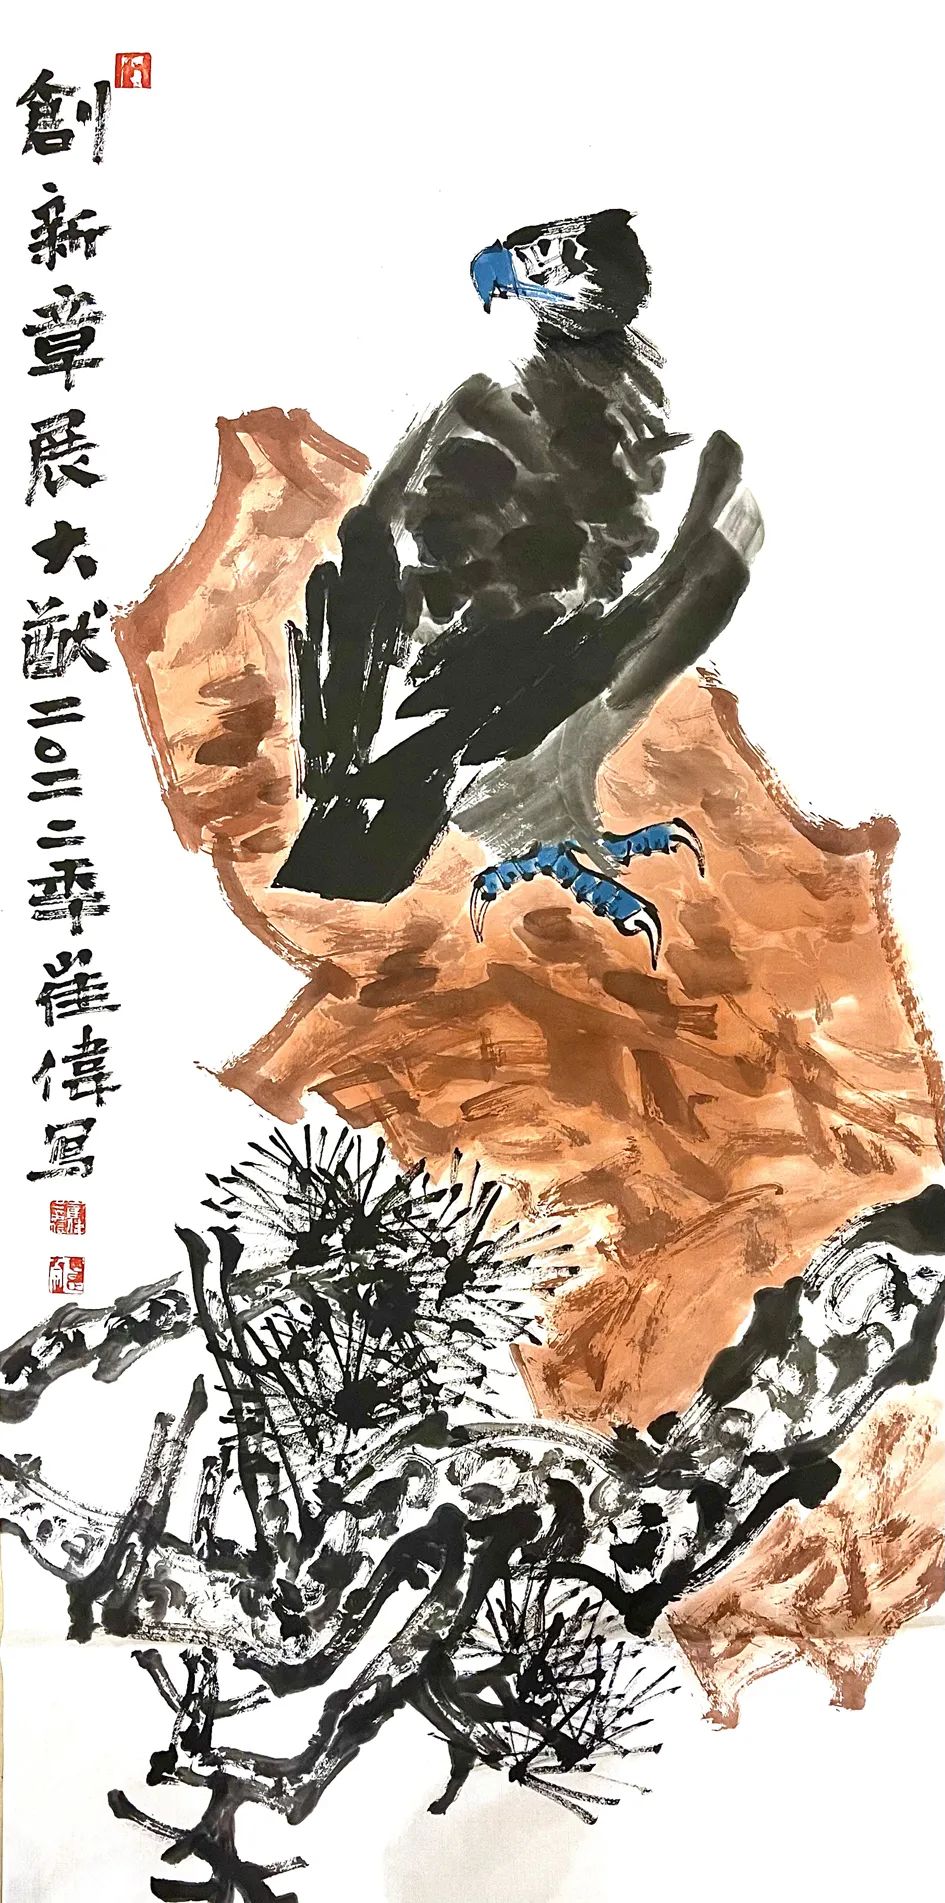 創新章展大猷二〇二二年崔偉寫